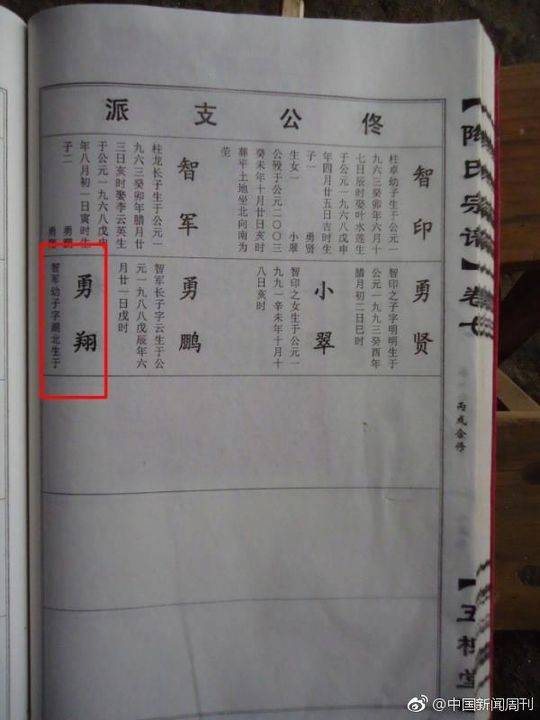 【陶氏宗谱】卷七
丙戌合修
【五柳堂
佟公支派
智印
桂卓幼子生于公元一
九六三癸卯年六月十
七日辰时娶叶水莲生
于公元一九六八戊申
年四月廿五日吉时生
子一 勇贤
生女一 小翠
公殁于公元二〇〇三
癸未年十月廿日亥时
葬平土地坐北向南为
茔
智军
桂龙长子生于公元一
九六三癸卯年腊月廿
三日亥时娶李云英生
于公元一九六八戊申
年八月初一日寅时生
子二 勇鹏
勇翔
勇贤
智印之子字明明生于
公元一九九三癸酉年
腊月初二日巳时
小翠
智印之女生于公元一
九九一辛未年十月十
八日亥时
勇鹏
智军长子字云生于公
元一九八八戊辰年六
月廿一日戌时
勇翔
智军幼子字湖北生于
@中国新闻周刊